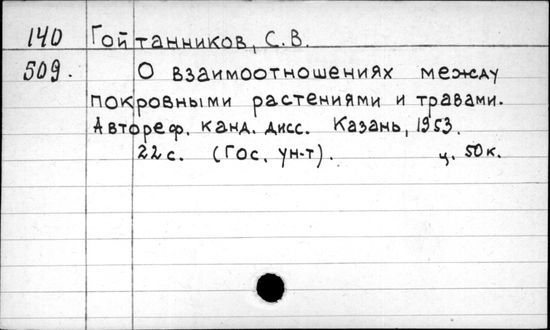 140 Гойтанников, С.В.
509. О взаимоотношениях между
покровными растениями и травами.
Автореф. канд. дисс. Казань, 1953.
22 с. (Гос. ун-т). ц. 50к.